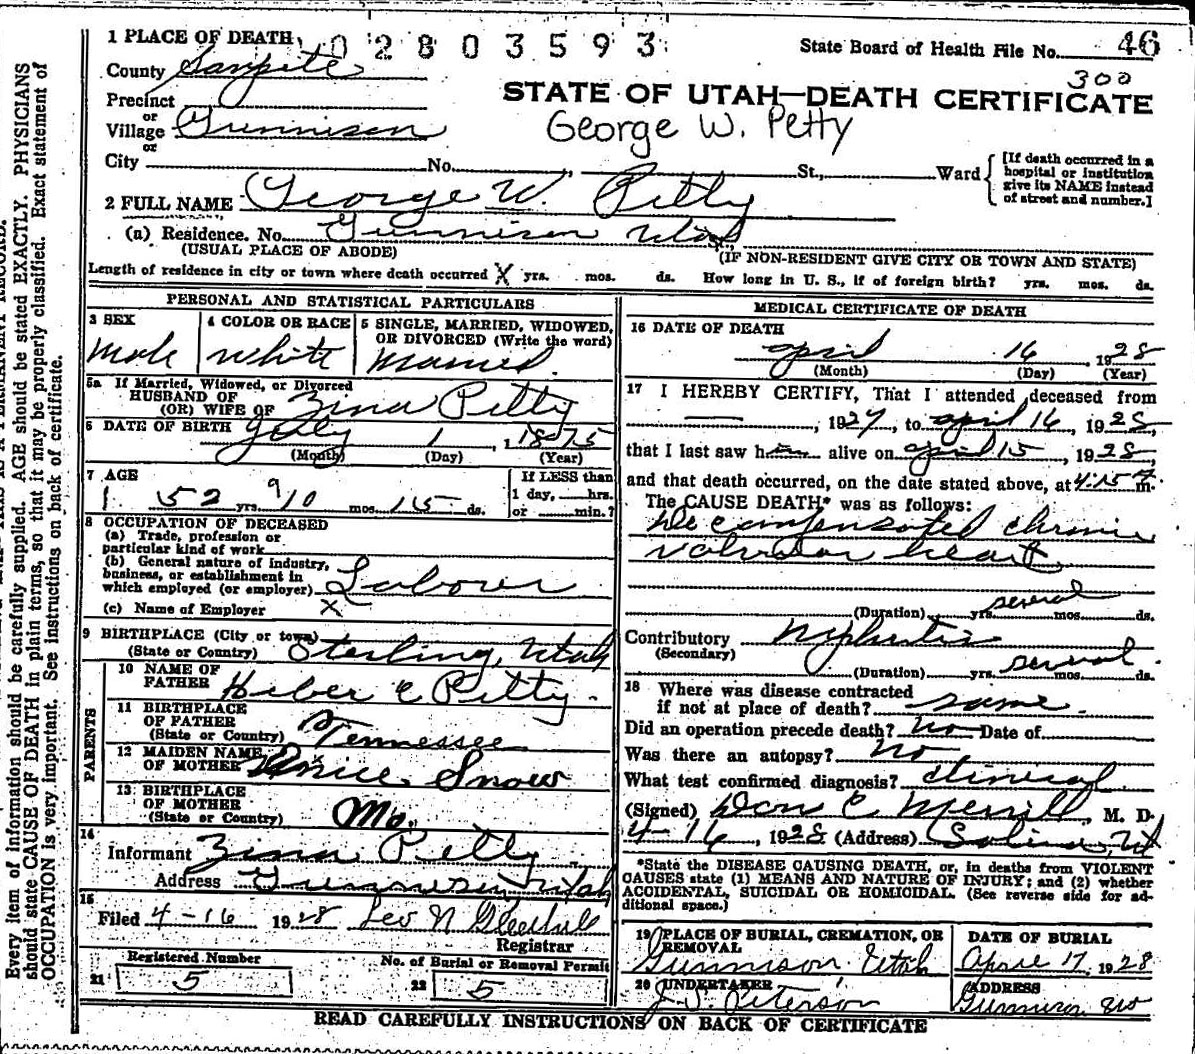 1 PLACE OF DEATH 0 2 8 0 3 5 9 3 State Board of Health File No. 46
County Sanpete 300
STATE OF UTAH—DEATH CERTIFICATE
Precinct
or
Village Gunnison George W. Petty
or
City No. St., Ward [If death occurred in a hospital or institution give its NAME instead of street and number.]
2 FULL NAME George W. Petty
(a) Residence. No. Gunnison Utah
(USUAL PLACE OF ABODE) (IF NON-RESIDENT GIVE CITY OR TOWN AND STATE)
Length of residence in city or town where death occurred X yrs. mos. ds. How long in U. S., if of foreign birth? yrs. mos. ds.
PERSONAL AND STATISTICAL PARTICULARS
3 SEX 4 COLOR OR RACE 5 SINGLE, MARRIED, WIDOWED,
OR DIVORCED (Write the word)
Male White Married
5a If Married, Widowed, or Divorced
HUSBAND OF
(OR) WIFE OF Zina Petty
6 DATE OF BIRTH July 1 1875
(Month) (Day) (Year)
7 AGE If LESS than
1 day, hrs.
or min.?
52 yrs. 9 10 mos. 15 ds.
8 OCCUPATION OF DECEASED
(a) Trade, profession or
particular kind of work
(b) General nature of industry,
business, or establishment in
which employed (or employer) Laborer
(c) Name of Employer X
9 BIRTHPLACE (City or town)
(State or Country) Sterling, Utah
PARENTS
10 NAME OF
FATHER Heber C Petty.
11 BIRTHPLACE
OF FATHER
(State or Country) Tennessee
12 MAIDEN NAME
OF MOTHER Snow
13 BIRTHPLACE
OF MOTHER
(State or Country) Mo.
14
Informant Zina Petty
Address Gunnison, Utah
15
Filed 4-16 1928 Leo N
Registrar
Registered Number No. of Burial or Removal Permit
21 5 22 5
MEDICAL CERTIFICATE OF DEATH
16 DATE OF DEATH
april 16 1928
(Month) (Day) (Year)
17 I HEREBY CERTIFY, That I attended deceased from
—, 1927, to april 16, 1928,
that I last saw him alive on april 15, 1928,
and that death occurred, on the date stated above, at 4:15 m.
The CAUSE DEATH* was as follows:
Decompensated chronic
valvular heart
(Duration) yrs. several mos. ds.
Contributory Nyphritis
(Secondary)
(Duration) yrs. several mos. ds.
18 Where was disease contracted
if not at place of death? same.
Did an operation precede death? No Date of
Was there an autopsy? No
What test confirmed diagnosis? clinical
(Signed) Don C. Merrill, M. D.
4-16, 1928 (Address) Salina, Ut
*State the DISEASE CAUSING DEATH, or, in deaths from VIOLENT
CAUSES state (1) MEANS AND NATURE OF INJURY; and (2) whether
ACCIDENTAL, SUICIDAL OR HOMICIDAL. (See reverse side for ad-
ditional space.)
19 PLACE OF BURIAL, CREMATION, OR
REMOVAL
Gunnison, Utah
DATE OF BURIAL
April 17, 1928
20 UNDERTAKER
J. S. Peterson
ADDRESS
Gunnison
READ CAREFULLY INSTRUCTIONS ON BACK OF CERTIFICATE
Every item of Information should be carefully supplied. AGE should be stated EXACTLY. PHYSICIANS
should state CAUSE OF DEATH in plain terms, so that it may be properly classified. Exact statement of
OCCUPATION is very important. See instructions on back of certificate.